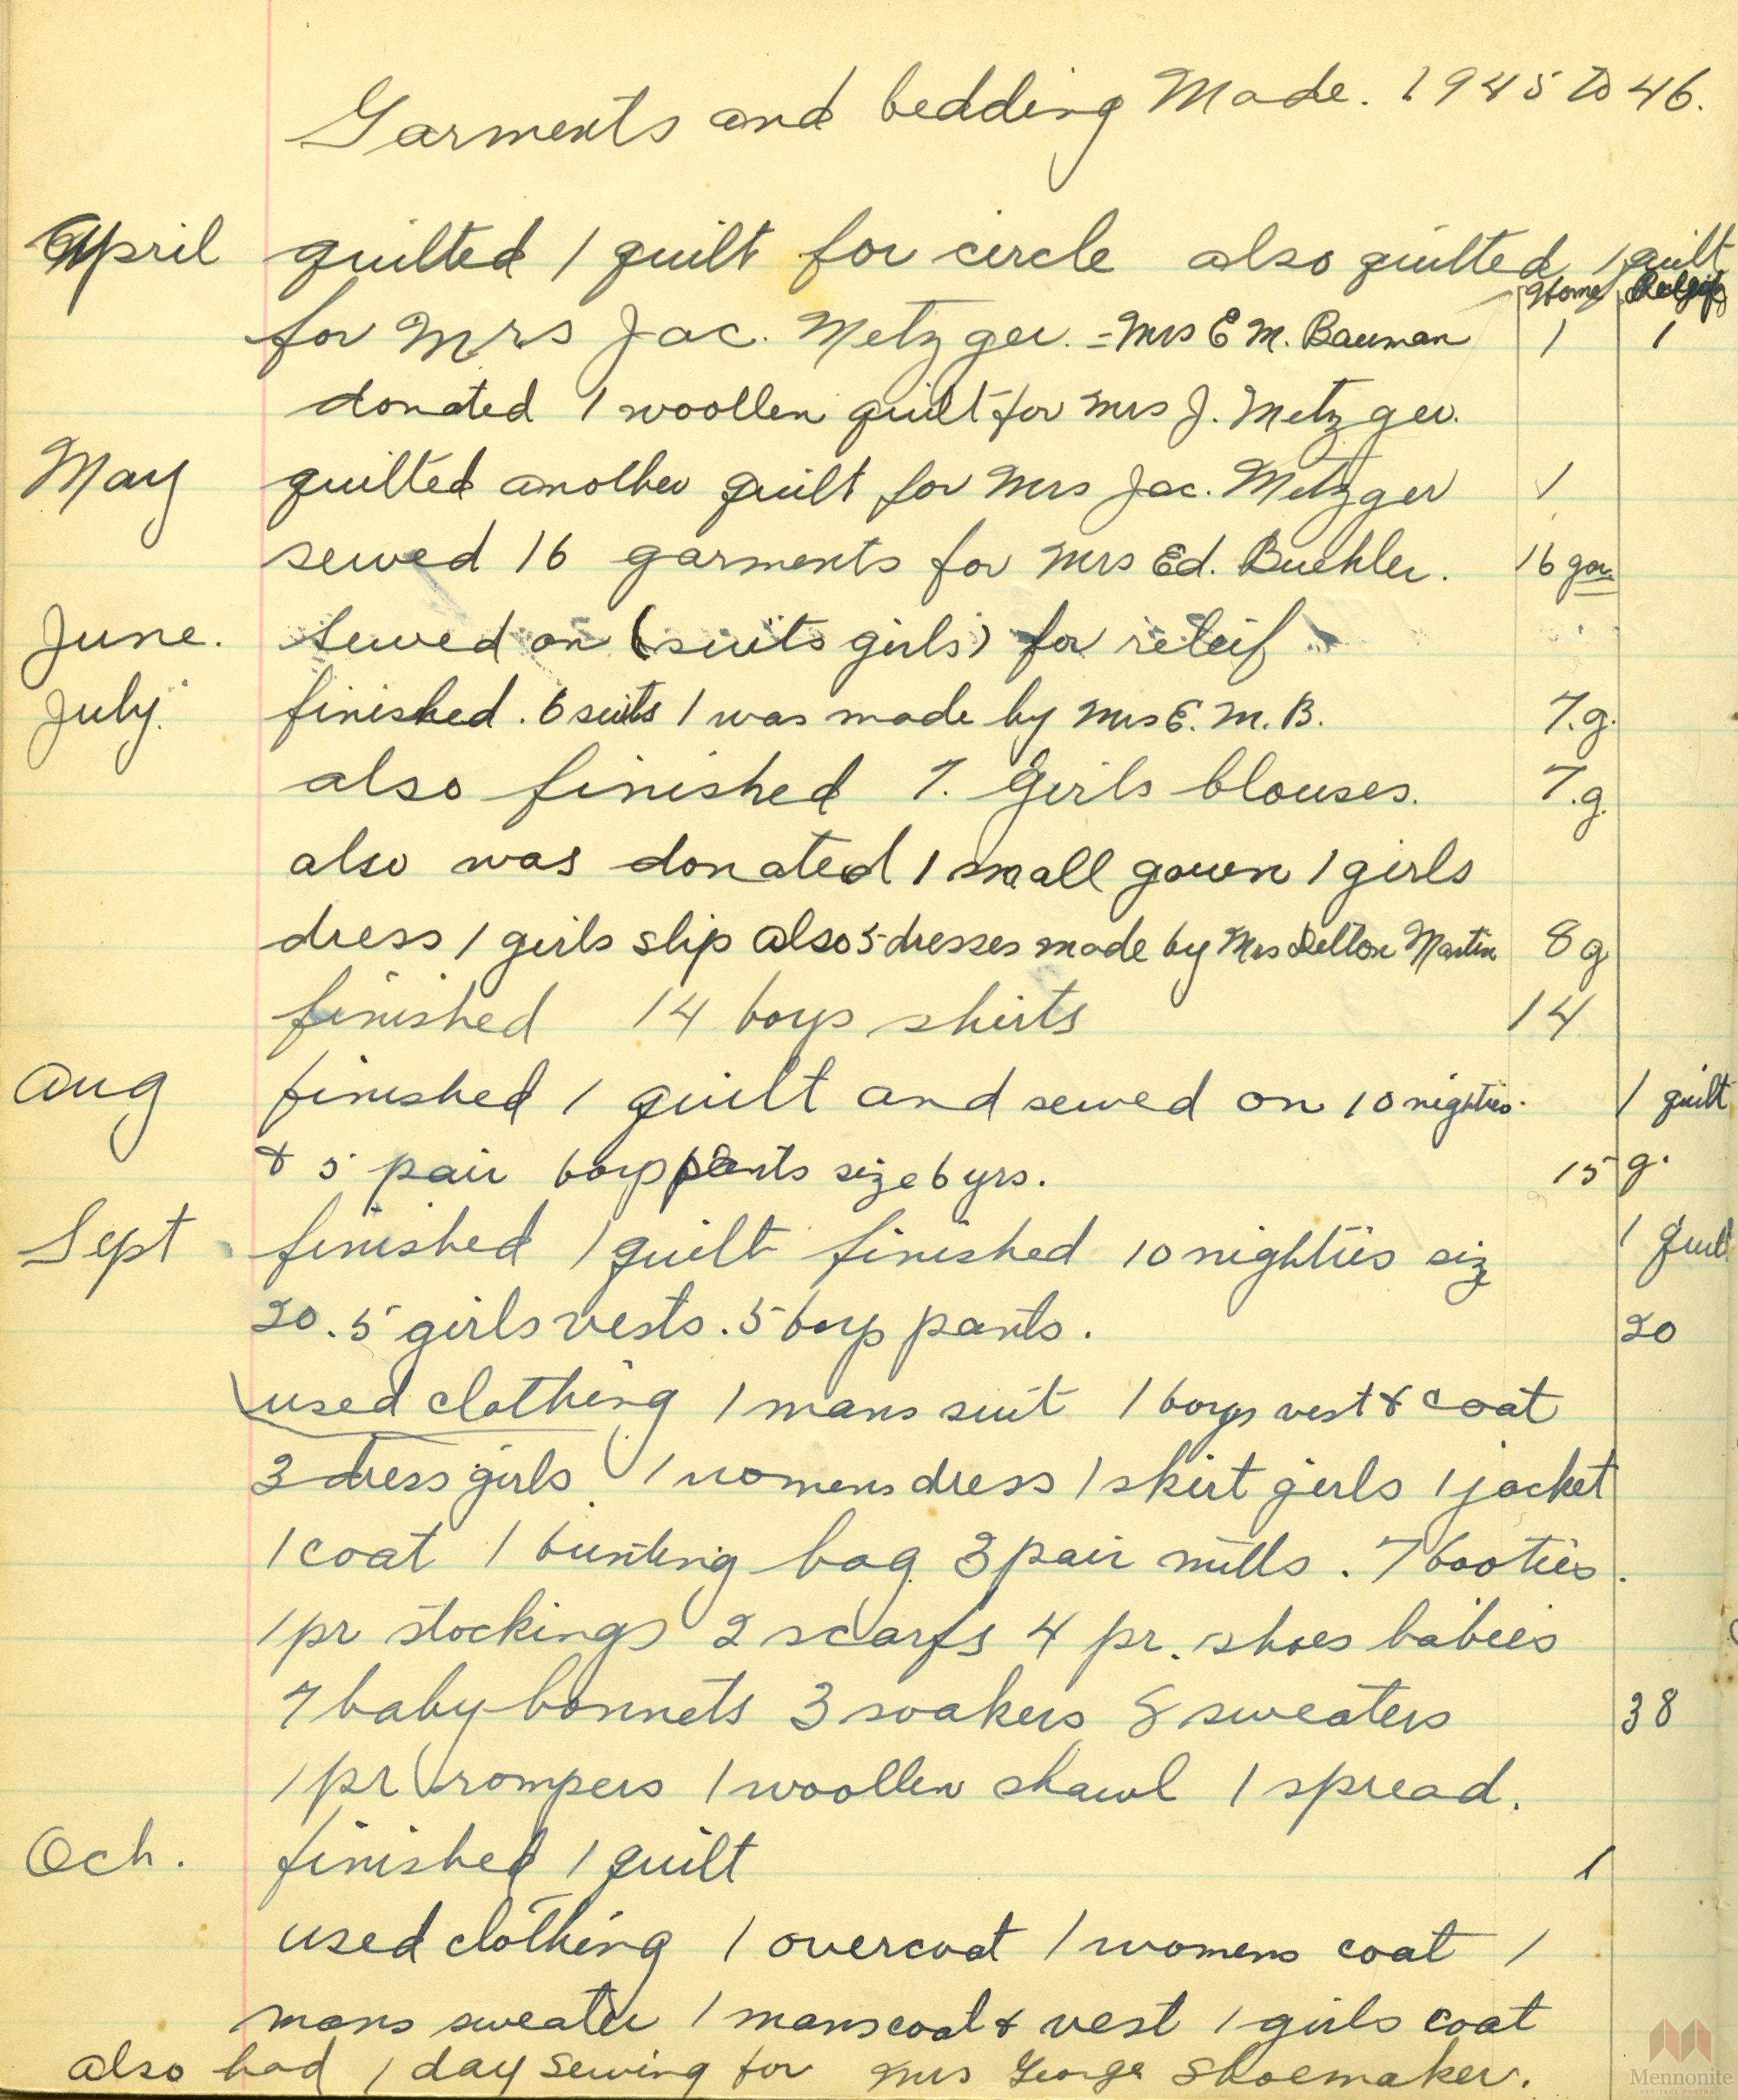 Garments and bedding Made. 1945 to 46.
April quilted 1 quilt for circle also quilted 1 quilt
Home Releif
for Mrs Jac. Metzger. = Mrs E M. Bauman 1 1
donated 1 woollen quilt for Mrs J. Metzger.
May quilted another quilt for Mrs Jac. Metzger 1
sewed 16 garments for Mrs Ed. Buehler. 16 gar.
June. sewed on (suits girls) for releif
July. finished. 6 suits 1 was made by Mrs E. M. B. 7.g.
also finished 7. Girls blouses. 7.g.
also was donated 1 small gown 1 girls
dress 1 girls slip also 5 dresses made by Mrs Delton Martin 8 g
finished 14 boys shirts 14
Aug finished 1 quilt and sewed on 10 nighties. 1 quilt
& 5 pair boys pants size 6 yrs. 15 g.
Sept finished 1 quilt finished 10 nighties siz 1 quilt
20. 5 girls vests. 5 boys pants. 20
used clothing 1 mans suit 1 boys vest & coat
3 dress girls. 1 womens dress 1 skirt girls 1 jacket
1 coat 1 bunting bag 3 pair mitts. 7 booties.
1 pr stockings 2 scarfs 4 pr. shoes babies
7 baby bonnets 3 soakers 8 sweaters 38
1 pr rompers 1 woollen shawl 1 spread.
Och. finished 1 quilt 1
used clothing 1 overcoat 1 womens coat 1
mans sweater 1 mans coat & vest 1 girls coat
also had 1 day sewing for Mrs George Shoemaker.
Mennonite